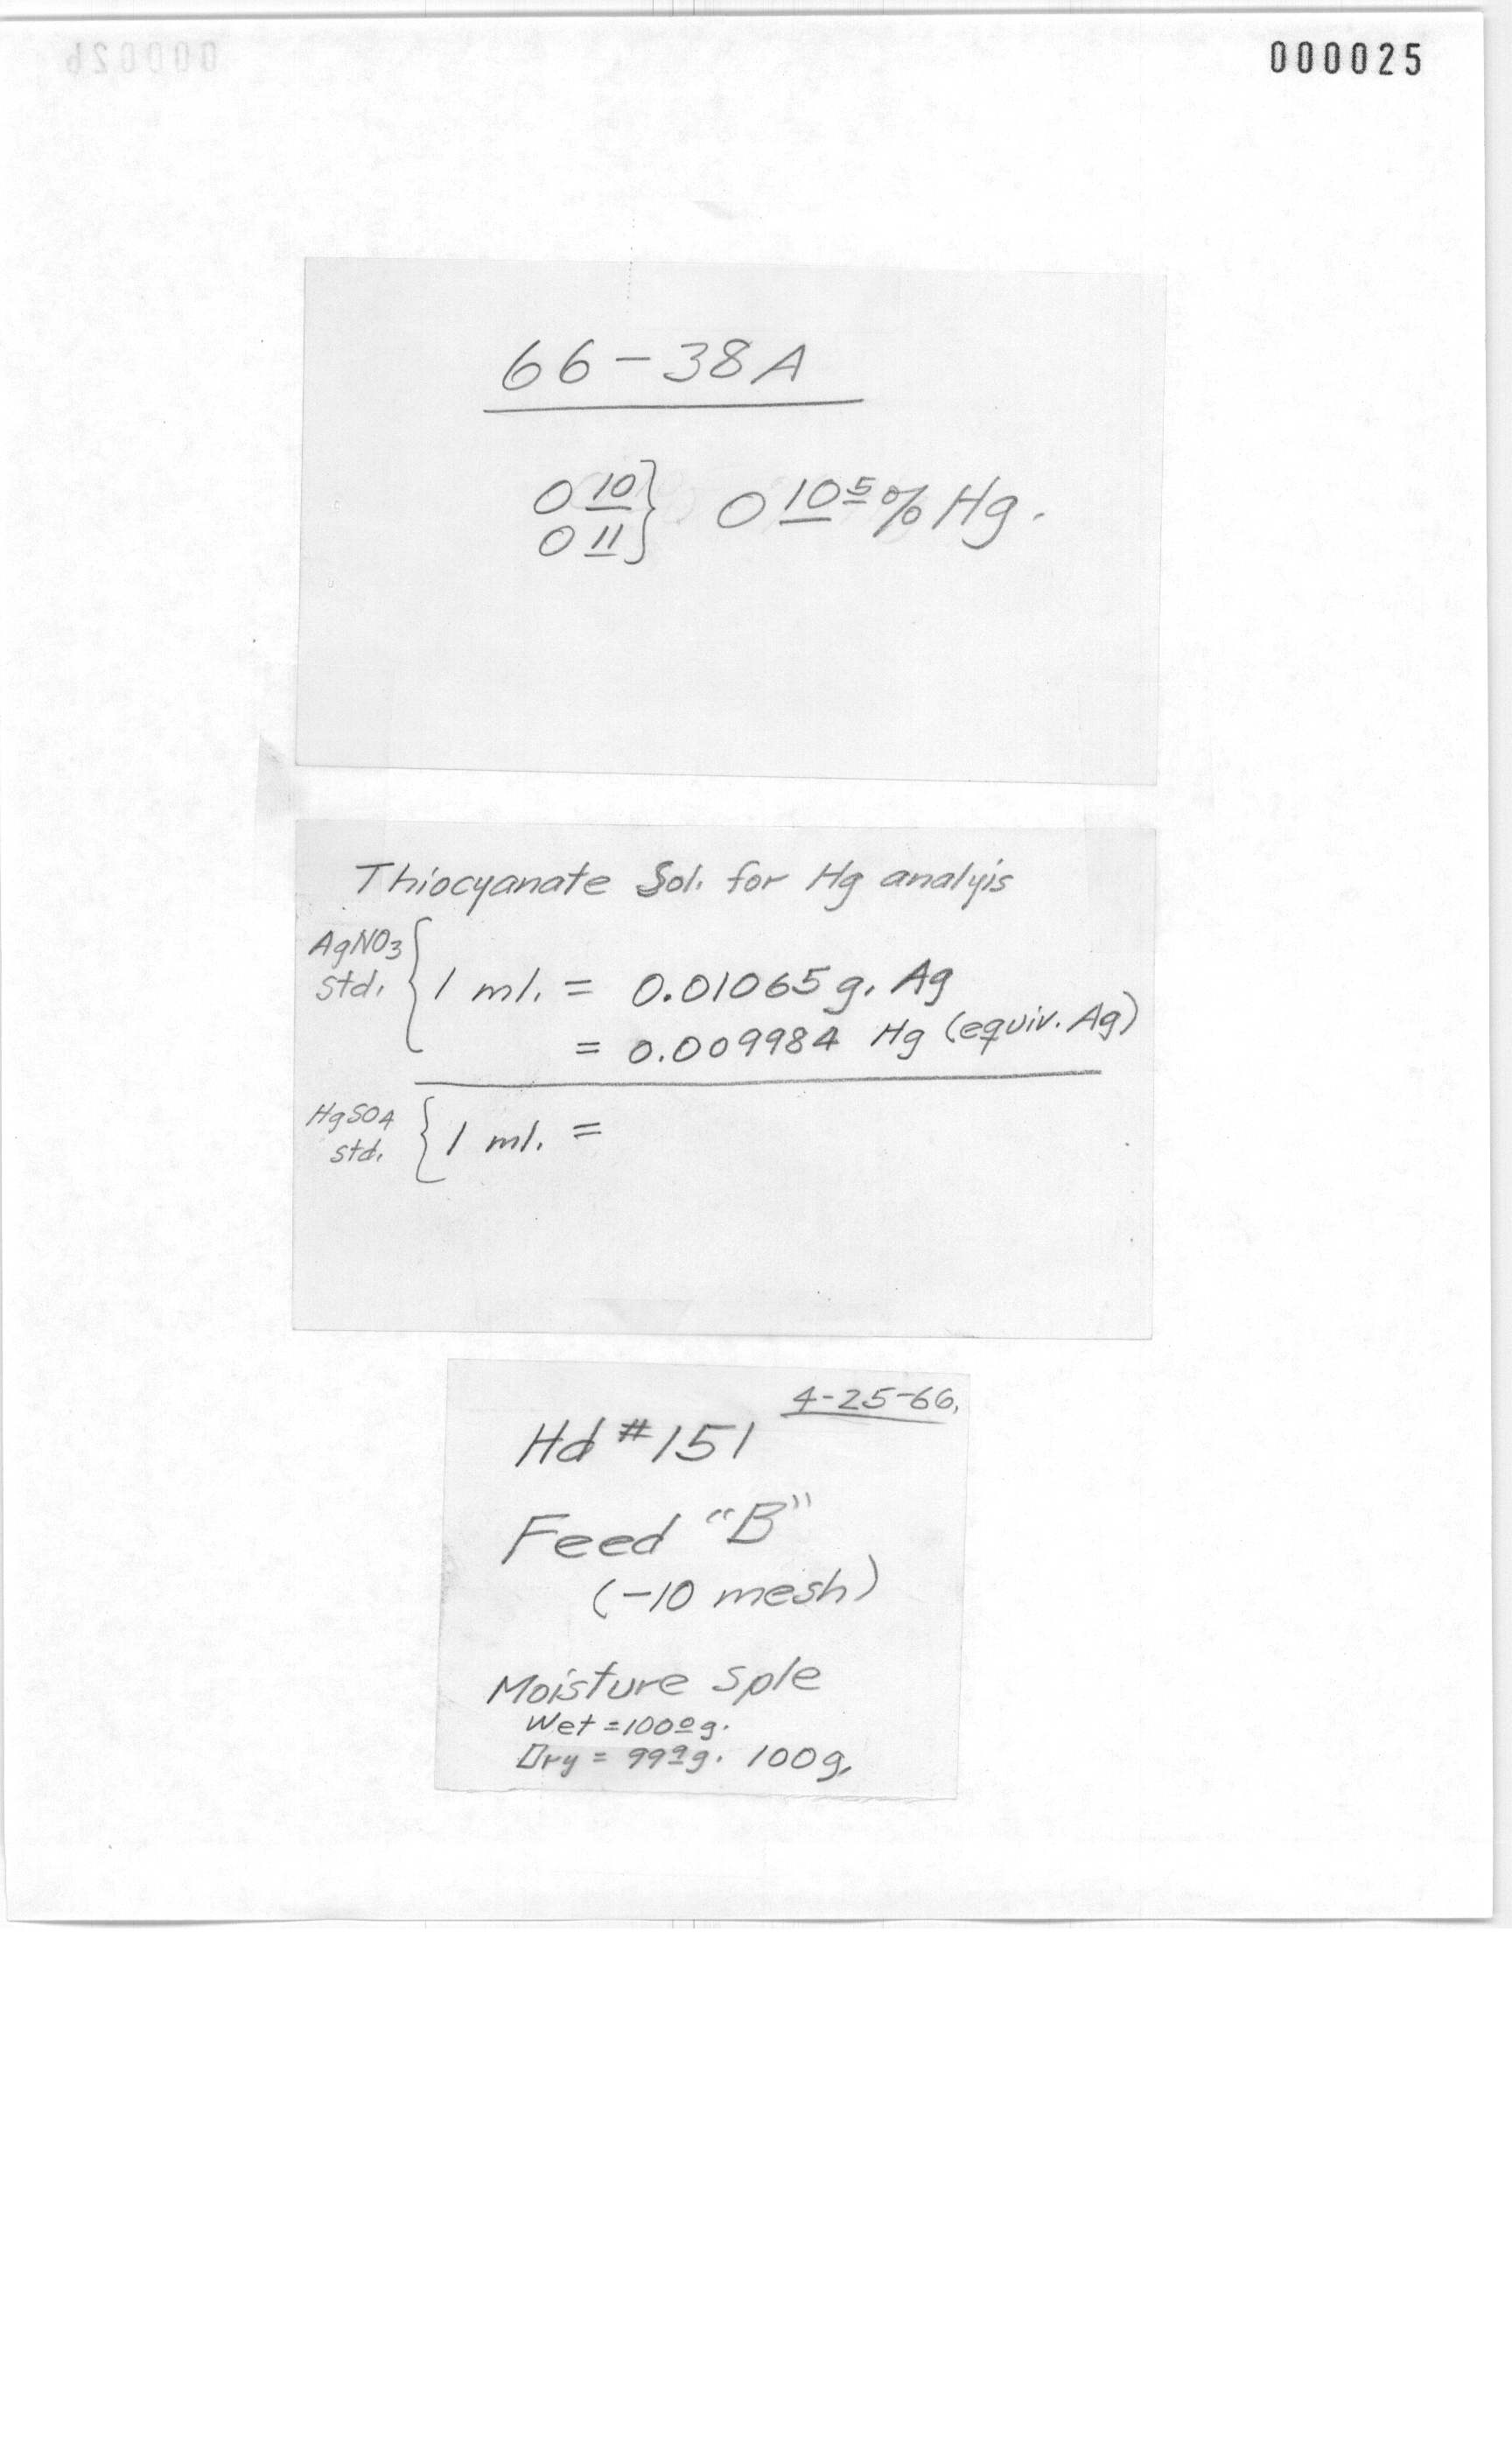 000025
66-38A
0 10 } 0 10 5 % Hg.
0 11
Thiocyanate Sol. for Hg analyis
AgNO3 std. { 1 ml. = 0.01065 g. Ag
= 0.009984 Hg (equiv. Ag)
HgSO4 std. { 1 ml. =
4-25-66.
Hd #151
Feed "B"
(-10 mesh)
Moisture Sple
Wet = 100 0 g.
Dry = 99 9 g. 100 g.